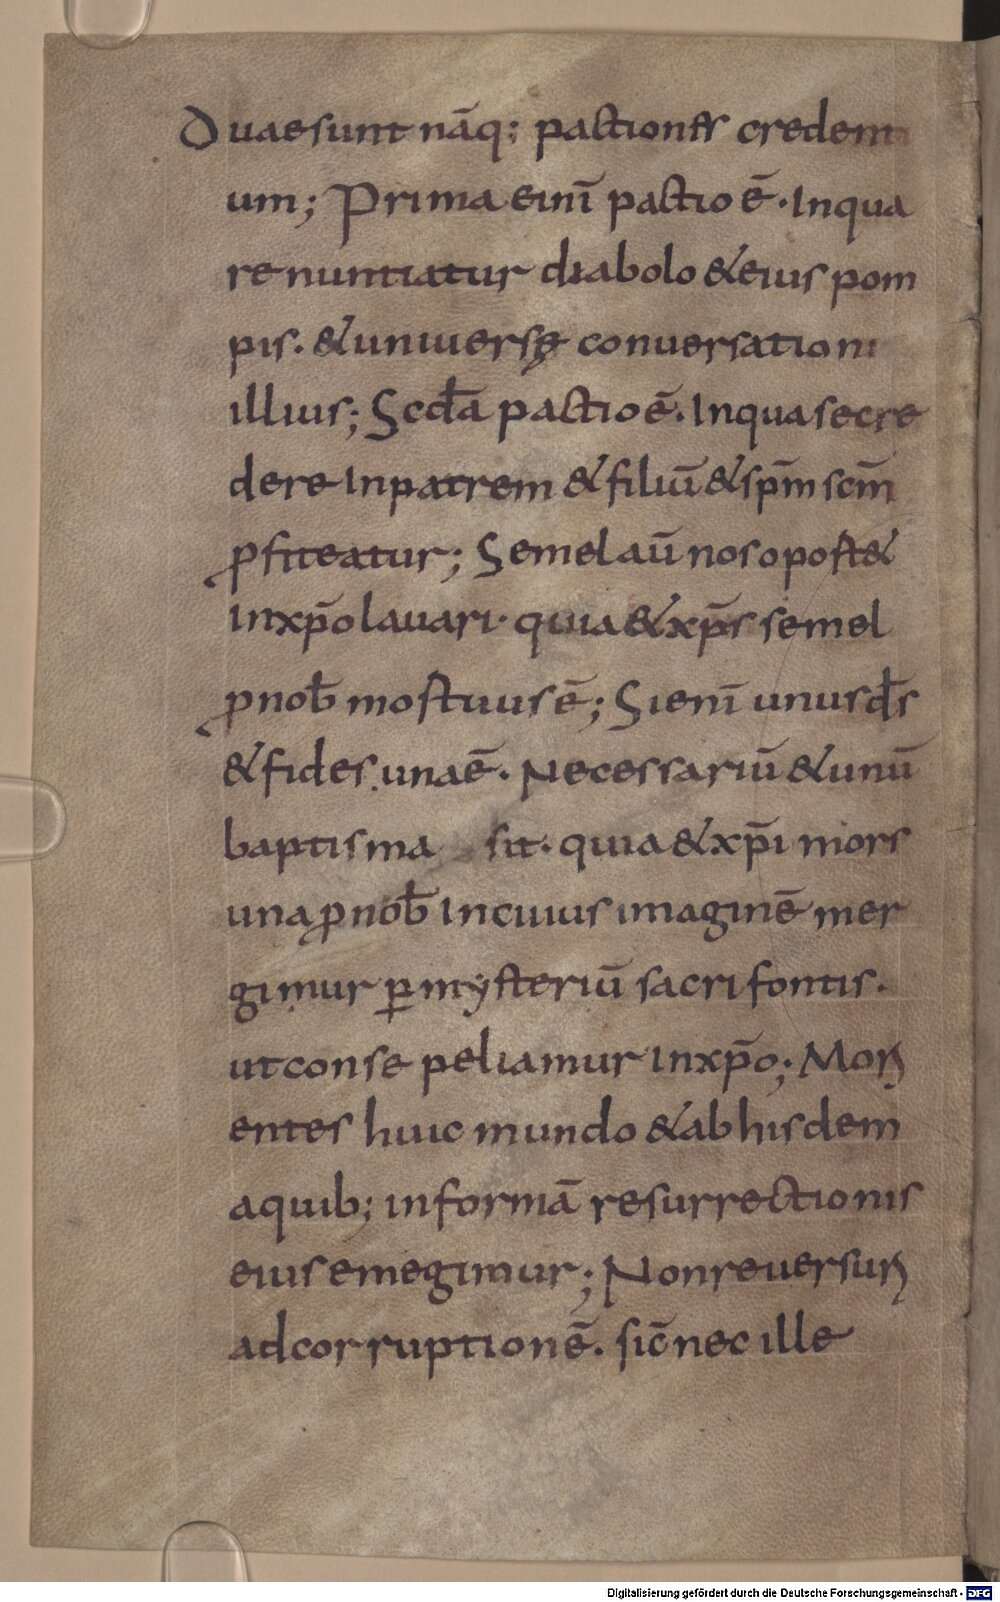 Duae sunt nāq; pactiones credent
um; Prima einī pactio ē · Inqua
renuntiatur diabolo & eius pom
pis · & uniuersę conuersationi
illius; Scđa pactio ē · Inqua secre
dere Inpatrem & filiū & sp̄m scm̄
ꝓfiteatur; Semel aū nos oport&
Inxp̄o lauari · quia & xp̄s semel
ꝓ nob̄ mortuus ē; Si enī unus d̄s
& fides una ē · Necessariū & unū
baptisma sit · quia & xp̄i mors
una ꝓ nob̄ Incuius imaginē mer
gimur ꝑ mysteriū sacri fontis ·
ut consepeliamur Inxp̄o; Moꝝ
entes huic mundo & ab hisdem
aquib; in formā resurrectionis
eius emegimur; Non reuersuꝝ
ad corruptionē · sic̄ nec ille
Digitalisierung gefördert durch die Deutsche Forschungsgemeinschaft - DFG